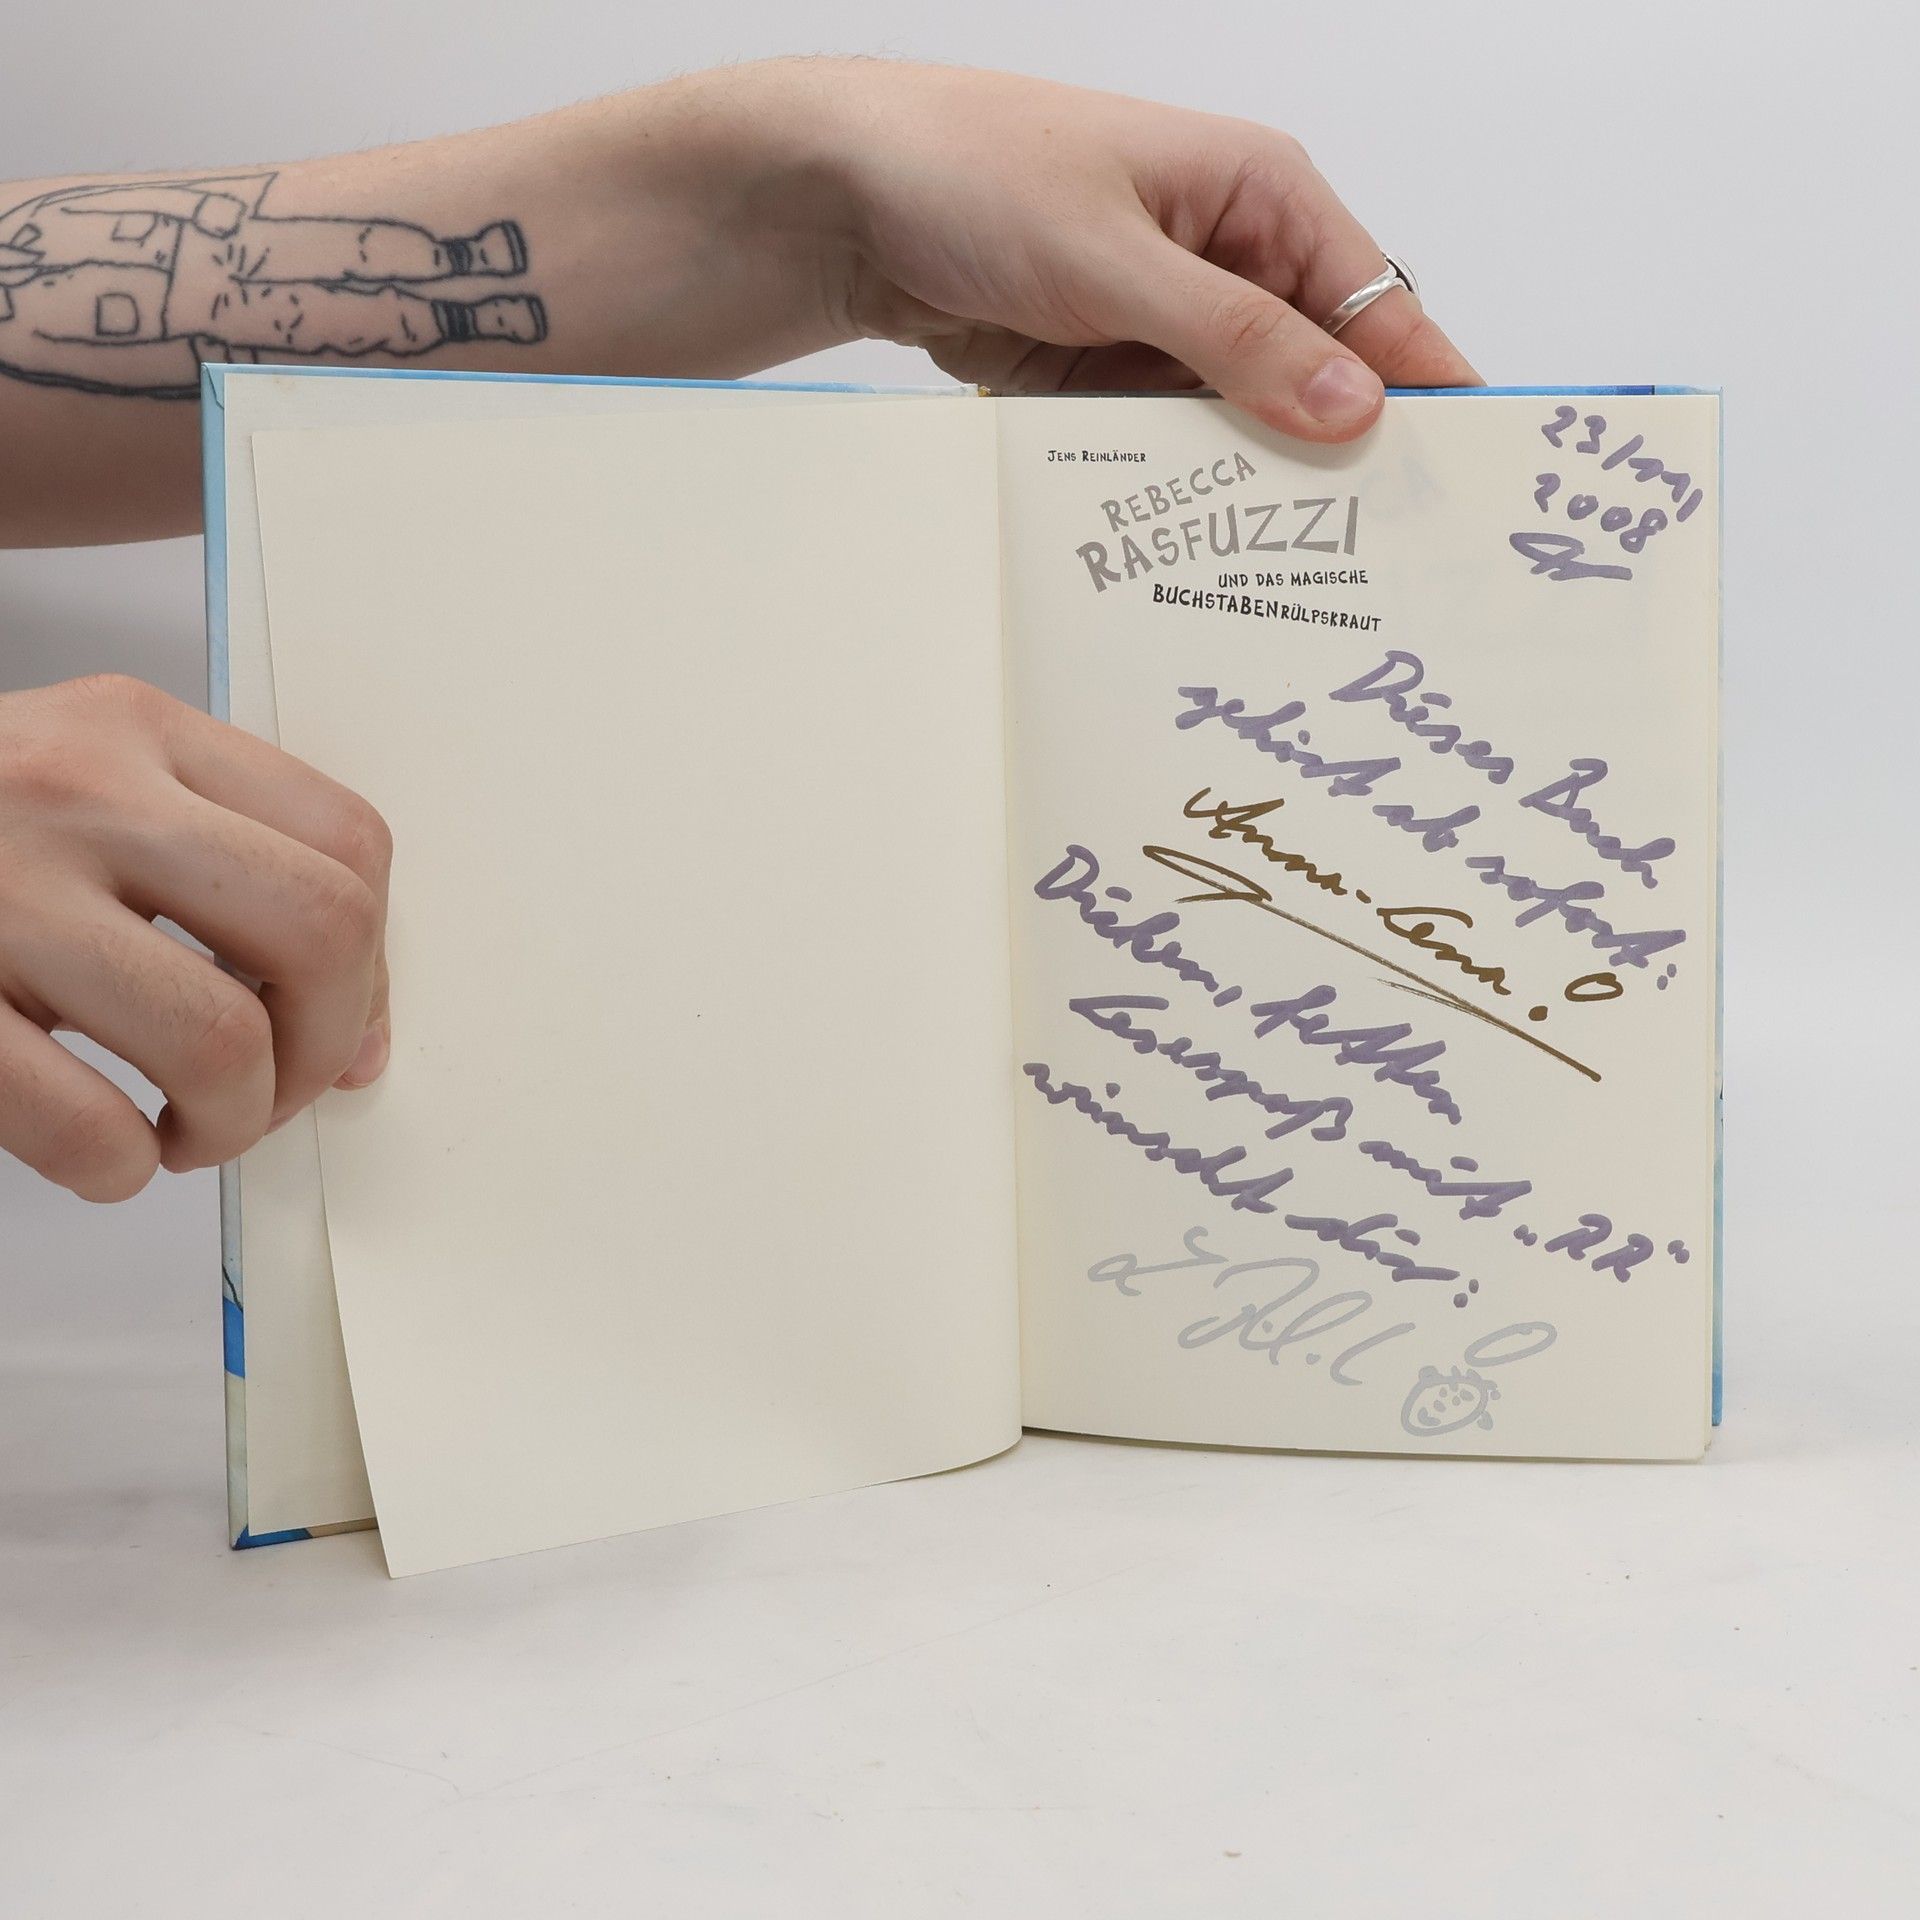 JENS REINLÄNDER
REBECCA
RASFUZZI
UND DAS MAGISCHE
BUCHSTABENRÜLPSKRAUT
2008
Dieses Buch
gehört ab sofort:
Anna-Lena!
Dicken, fetten
Lesespaß mit „RR“
wünscht dir: